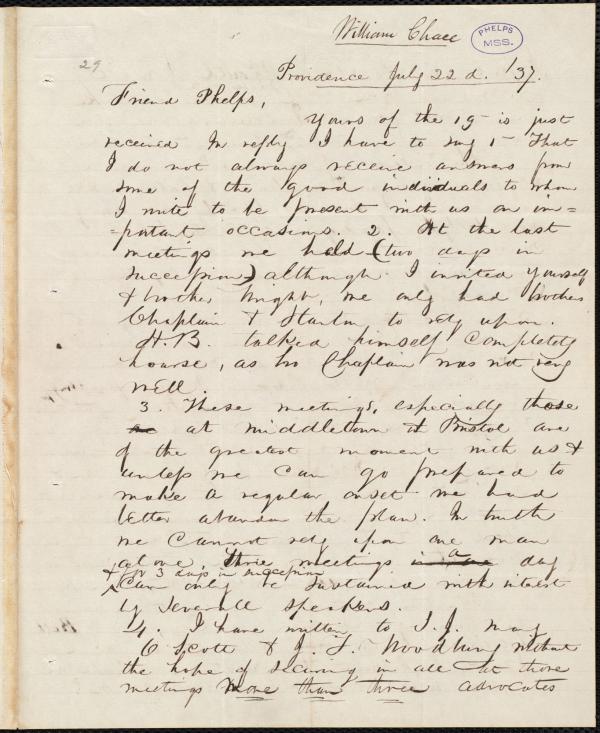 William Chace
PHELPS
MSS.
29
Providence July 22d. /37.
Friend Phelps,
Yours of the 19 is just
received In reply I have to say 1 - That
I do not always receive answers from
some of the good individuals to whom
I write to be present with us on im=
=portant occasions. 2. At the last
meetings we held (two days in
succession) although I invited yourself
& brother Wright, we only had brothers
Chaplain & Stanton to rely upon.
H.B. talked himself completely
hoarse, as bro Chaplain was not very
well.
3. These meetings, especially those
at Middletown & Bristol are
of the greatest moment with us &
unless we can go prepared to
make a regular onset we had
better abandon the plan. In truth
we cannot rely upon one man
alone, three meetings a day
& for 3 days in succession
can only be sustained with interest
by severall speakers.
4. I have written to S. J. May
O Scott & J. T. Woodbury without
the hope of securing in all at those
meetings more than three advocates